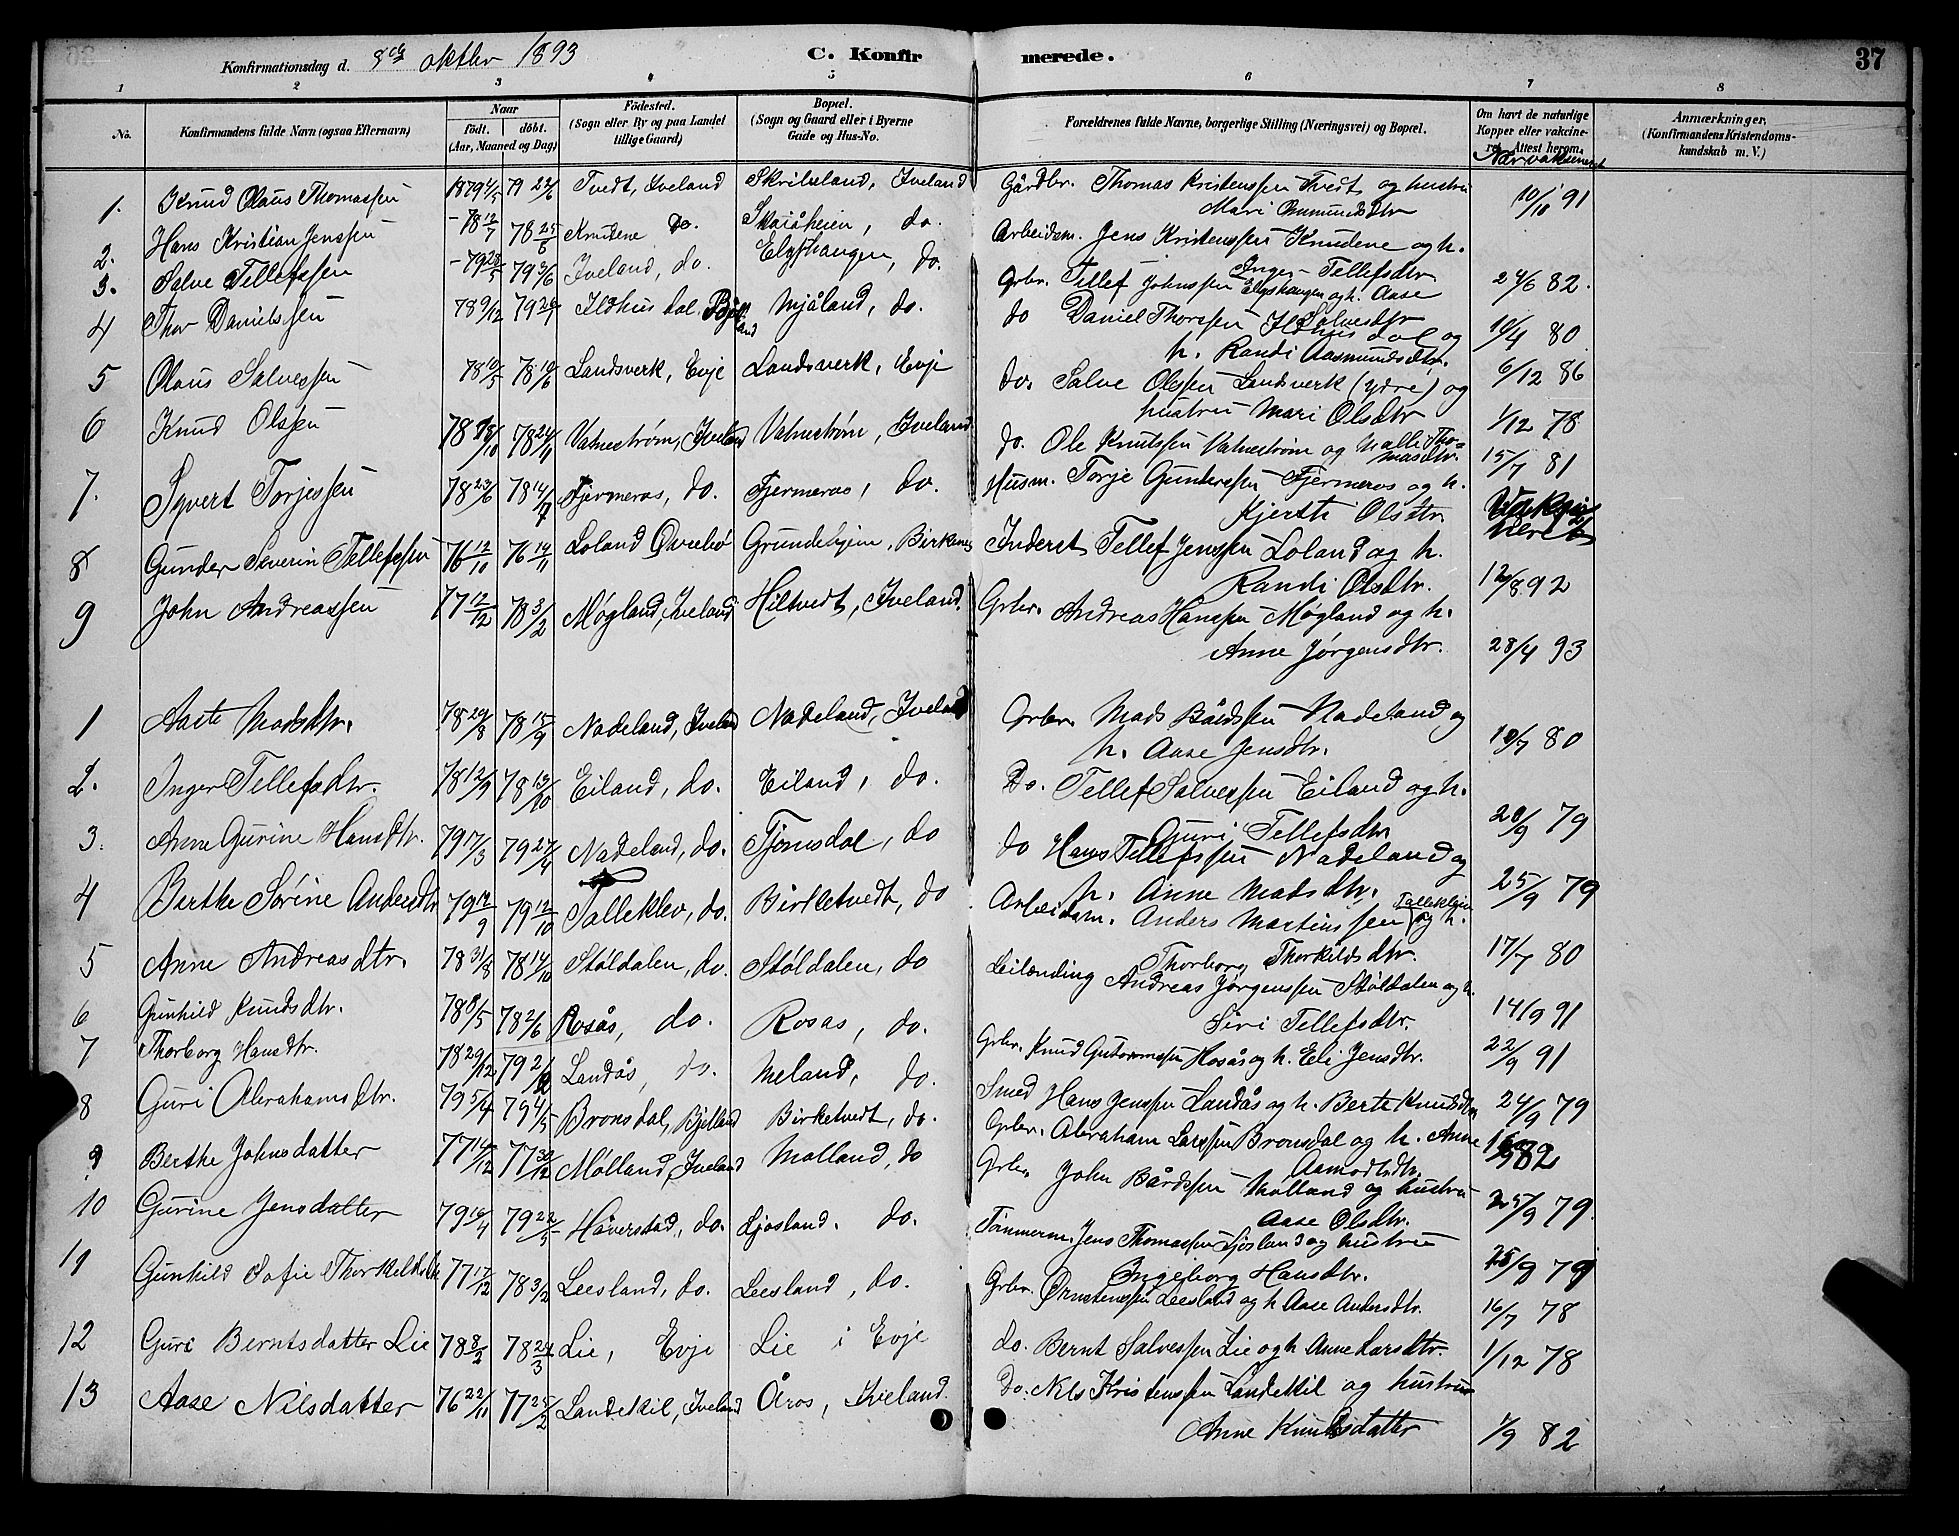 Konfirmationsdag d. 8de oktbr 1893 C. Konfirmerede. 37
1 2 3 4 5 6 7 8
No. Konfirmandens fulde Navn (ogsaa Efternavn) Naar født. døbt. (Aar, Maaned og Dag) Fødested. (Sogn eller By og paa Landet tillige Gaard) Bopæl. (Sogn og Gaard eller i Byerne Gade og Hus-No. Forældrenes fulde Navne, borgerlige Stilling (Næringsvei) og Bopæl. Om havt de naturlige Kopper eller vaccineret. Attest herom. Anmærkninger. (Konfirmandens Kristendomskundskab m. V.)
1. Knud Olaus Thomassen 1879 79 22/6 Tvedt, Iveland Iveland Gårdbr. Thomas Kristenssen Tvedt og hustru
Mari dtr 10/10 91
2. Hans Kristian Jenssen 78 12/7 78 25/8 Knudene do. Skaiåheien, do. Arbeidsm. Jens Kristenssen Knudene og h.
Inger Tellefsdtr
3. Salve Tellefssen 79 79 3/6 Iveland, do. Elgshaugen, do. Grbr. Tellef Johnssen Elgshaugen og h. Aase
Salvesdtr 24/6 82.
4 Thor Danielssen 78 9/12 79 Ildhusdal Mjåland, do. do Daniel Thorssen Ildhusdal og
h. Randi Aasmundsdtr. 80
5 Olaus Salvessen 78 78 Landsverk, Evje Landsverk, Evje do. Salve Olssen Landsverk (ydre) og
hustru Mari Olsdtr 6/12 86
6 Knud Olssen 78 78 Vatnestrøm, Iveland Vatnestrøm, Iveland do. Ole Knutssen Vatnestrøm og Malli Tho-
masdtr. 1/12 78
7. Syvert Torjessen 78 23/6 78 14/7 Fjermeros, do. Fjermeros, do. Husm. Torje Gunderssen Fjermeros og h.
Kjersti Olsdtr 15/7 81
8 Gunder Severin Tellefssen 76 12/10 76 Loland Øvrebø Birkenes Inderst Tellef Jenssen Loland og h.
Randi Olsdtr. 12/8 92
9 John Andreassen 77 12/12 78 3/2 Møgland, Iveland Hiltvedt, Iveland. Grbr. Andreas Hanssen Møgland og h.
Anne Jørgensdtr. 28/4 93
1 Aaste Madsdtr. 78 29/8 78 15/9 Nadeland, Iveland Nadeland, Iveland Grbr. Mads Bårdssen Nadeland og
h. Aase Jensdtr. 80
2. Inger Tellefsdtr. 78 12/9 78 13/10 Eiland, do. Eiland, do. Do. Tellef Salvessen Eiland og h.
Guri Tellefsdtr 79
3. Anne Gurine Hansdtr. 79 17/3 79 27/4 Nadeland, do. Tjomsdal, do do Hans Tellefssen Nadeland og
h. Anne Madsdtr. 25/9 79
4 Berthe Sørine Andersdtr 79 79 12/10 Talleklev, do. Birketvedt, do Arbeidsm. Anders Martinssen og h.
Thorborg Thorkildsdtr. 17/7 80
5 Anne Andreasdtr. 78 31/8 78 14/10 Støldalen, do. Støldalen, do Leilending Andreas Jørgenssen Støldalen og h.
Siri Tellefsdtr. 14/9 91
6 Gunhild Knudsdtr. 78 8/5 78 2/6 Rosås, do. Rosas, do. Grbr. Knud Guttormssen Rosås og h. Eli Jensdtr. 22/9 91
7 Thorborg Hansdtr. 78 29/12 79 Landås, do. Meland, do. Smed Hans Jenssen Landås og h. Berte Knudsdtr 24/9 79
8 Guri Abrahamsdtr. 79 5/4 79 4/5 Bronsdal, Bjelland Birketvedt, do. Grbr. Abraham Larssen Bronsdal og h. Anne
Aamodtsdtr. 82
9 Berthe Johnsdatter 77 77 30/12 Mølland, Iveland Mølland, do Grbr. John Bårdssen Mølland og hustru
Aase Olsdtr. 25/9 79
10 Gurine Jensdatter 79 79 Håverstad, do. Ljosland. do. Tømmerm. Jens Thomassen Ljosland og hustru
Ingeborg Hansdtr. 25/9 79
11 Gunhild Sofie Thorkildsdtr 77 17/12 78 3/2 Leesland, do. Leesland, do. Grbr. Leesland og h Aase Andersdtr. 16/7 78
12 Guri Berntsdatter Lie 78 8/2 78 24/3 Lie, Evje Lie i Evje do. Bernt Salvessen Lie og h Anne Larsdtr. 1/12 78
13 Aase Nilsdatter 76 22/11 77 25/2 Landekil, Iveland Åros, Iveland. Do. Nils Kristenssen Landekil og hustru
Anne Knudsdatter 1/9 82